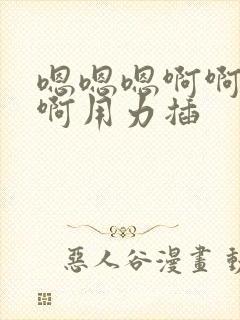 嗯嗯嗯啊啊
啊用力插
惡人谷漫畫